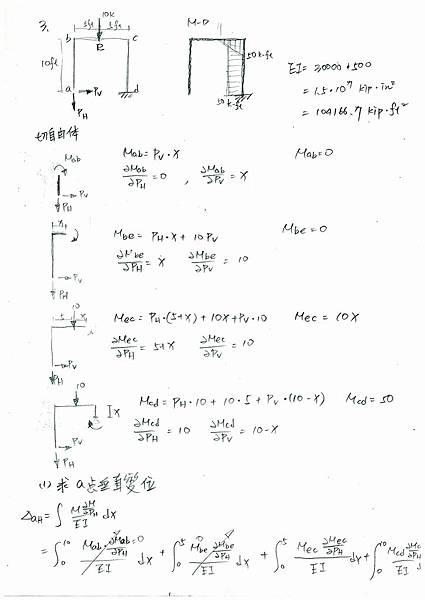 3.
10k
5ft 5ft
b e c
10ft
a → Pv d
PH
M-D
50 k-ft
50 k-ft
EI = 30000 × 500
= 1.5 × 10⁷ kip·in²
= 104166.7 kip·ft²
切自由体
Mab
Pv
PH
Mab = Pv · X Mab = 0
∂Mab/∂PH = 0 , ∂Mab/∂Pv = X
X
Pv
PH
Mbe = PH · X + 10 Pv Mbe = 0
∂Mbe/∂PH = X ∂Mbe/∂Pv = 10
10
5 X
Pv
PH
Mec = PH · (5+X) + 10X + Pv · 10 Mec = 10X
∂Mec/∂PH = 5+X ∂Mec/∂Pv = 10
10
X
Pv
PH
Mcd = PH · 10 + 10 · 5 + Pv · (10-X) Mcd = 50
∂Mcd/∂PH = 10 ∂Mcd/∂Pv = 10-X
(1) 求 a 点垂直變位
ΔaH = ∫ M ∂M/∂PH / EI dx
= ∫₀¹⁰ Mab · ∂Mab/∂PH / EI dx + ∫₀⁵ Mbe ∂Mbe/∂PH / EI dx + ∫₀⁵ Mec ∂Mec/∂PH / EI dx + ∫₀¹⁰ Mcd ∂Mc/∂PH / EI